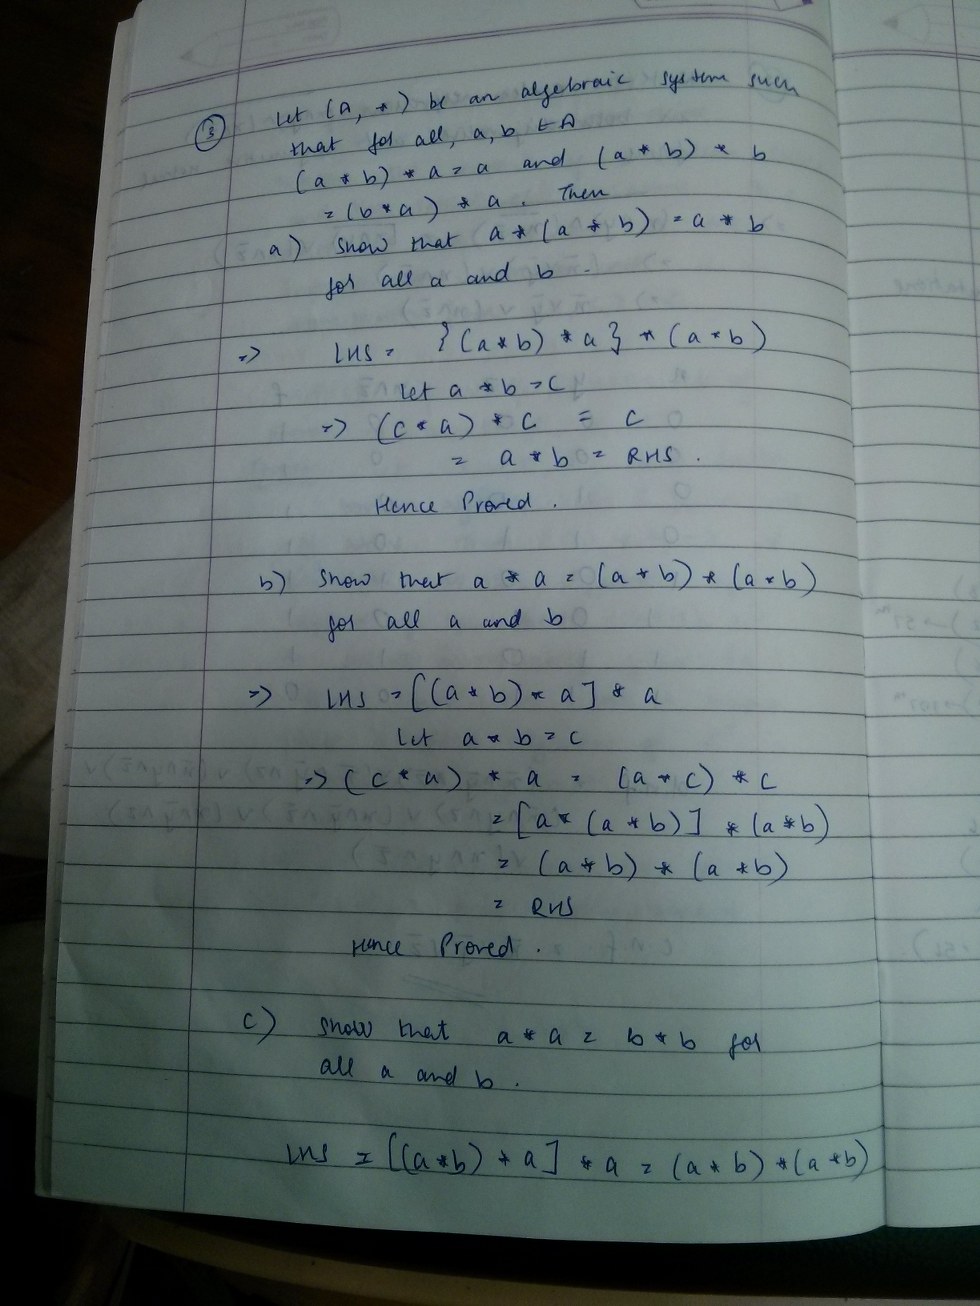 ③ Let (A, *) be an algebraic system such
that for all, a, b ∈ A
(a * b) * a = a and (a * b) * b
= (b * a) * a. Then
a) Show that a * (a * b) = a * b
for all a and b.
=> LHS = {(a * b) * a} * (a * b)
Let a * b = c
=> (c * a) * c = c
= a * b = RHS.
Hence Proved.
b) Show that a * a = (a * b) * (a * b)
for all a and b
=> LHS = [(a * b) * a] * a
Let a * b = c
=> (c * a) * a = (a * c) * c
= [a * (a * b)] * (a * b)
= (a * b) * (a * b)
= RHS
Hence Proved.
c) Show that a * a = b * b for
all a and b.
LHS = [(a * b) * a] * a = (a * b) * (a * b)